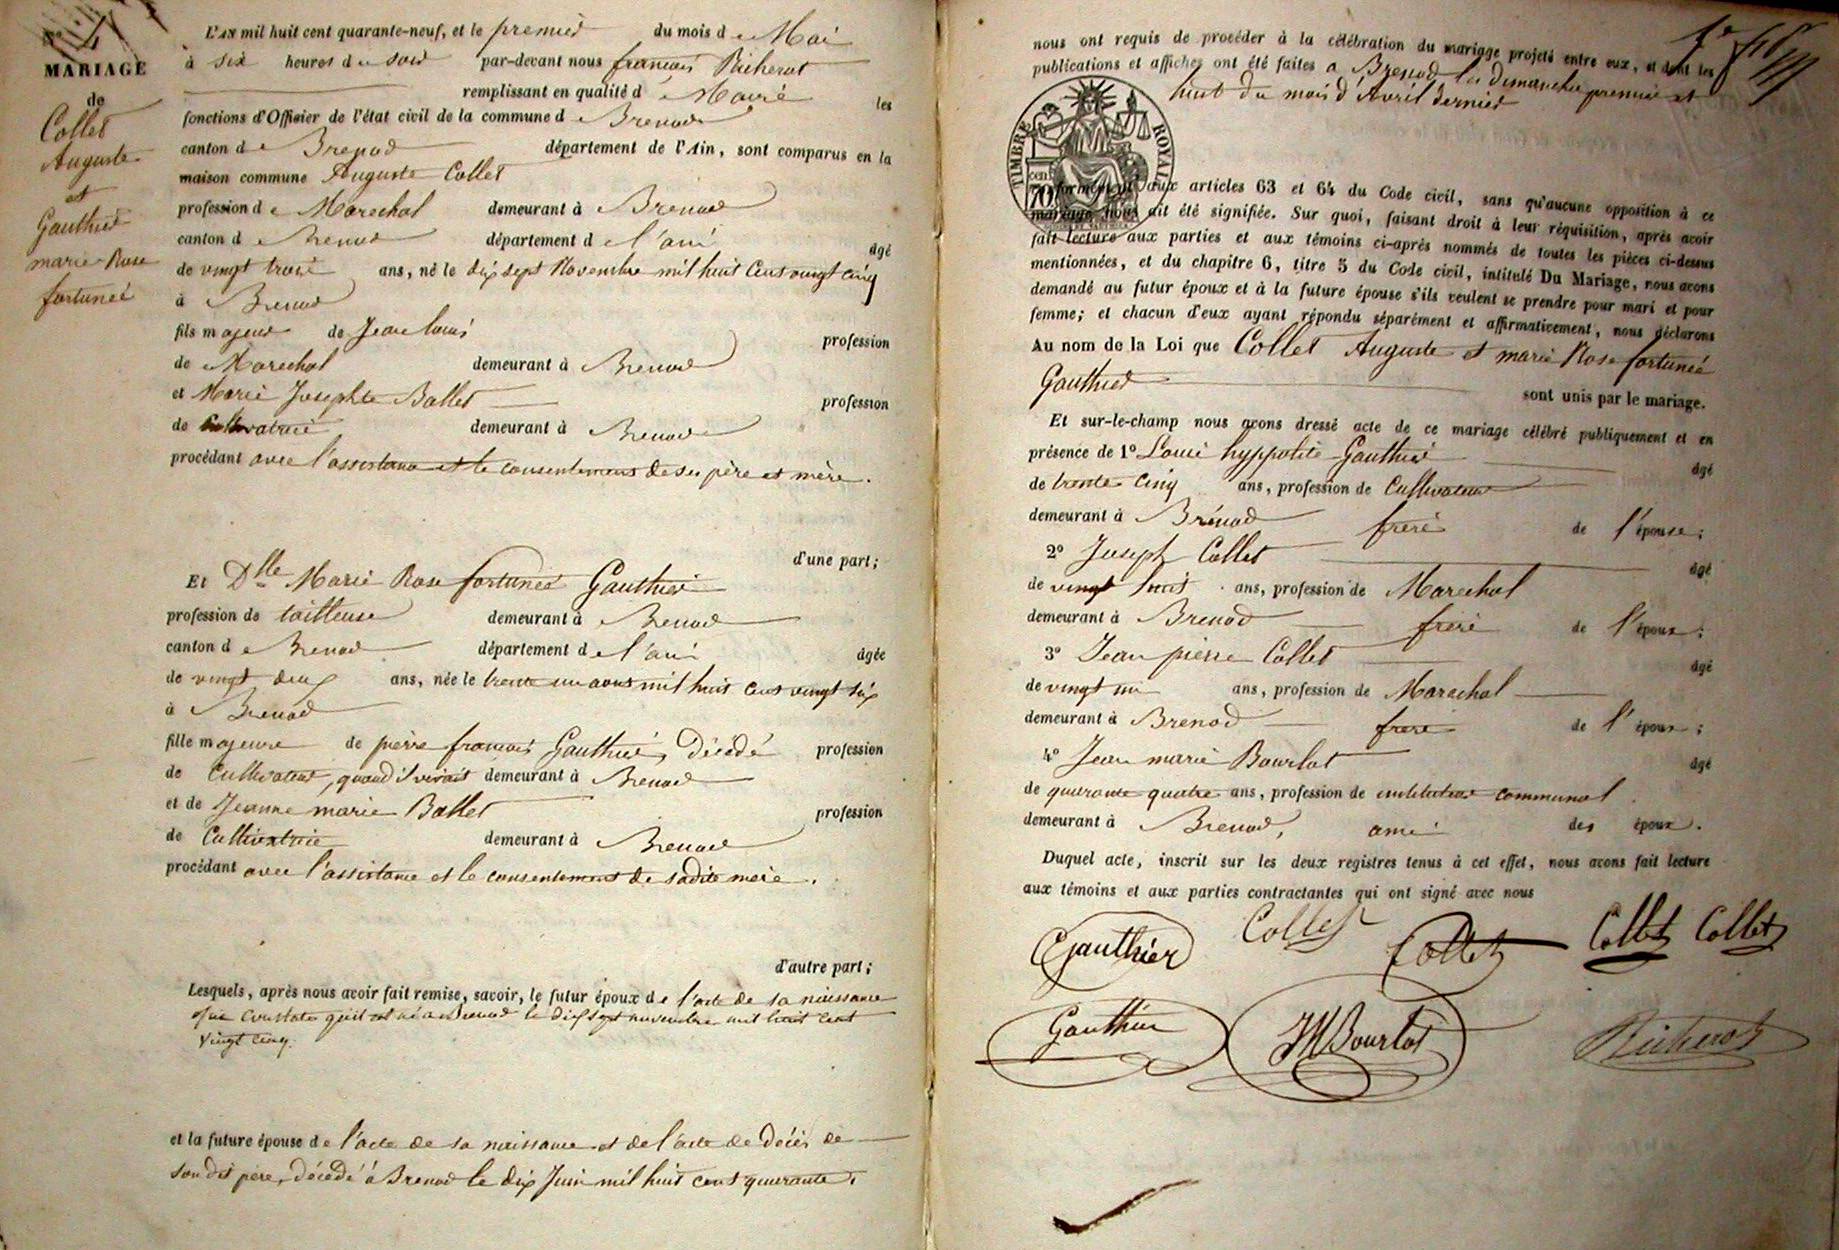 N° 4
MARIAGE
de
Collet
Auguste
et
Gauthier
marie Rose
fortunée
L'AN mil huit cent quarante-neuf, et le premier du mois de Mai
à six heures du soir par-devant nous françois Richerot
remplissant en qualité de Maire les
fonctions d'Officier de l'état civil de la commune de Brenod
canton de Brenod département de l'Ain, sont comparus en la
maison commune Auguste Collet
profession de Marechal demeurant à Brenod
canton d Brenod département de l'ain âgé
de vingt trois ans, né le dix sept Novembre mil huit Cent vingt cinq
à Brenod
fils majeur de Jean louis profession
de Marechal demeurant à Brenod
et Marie Josephte Ballet profession
de Cultivatrice demeurant à Brenod
procédant avec l'assistance et le consentement de ses père et mère.
d'une part;
Et Dlle Marie Rose fortunée Gauthier
profession de tailleuse demeurant à Brenod
canton de Brenod département de l'ain âgée
de vingt deux ans, née le trente un aout mil huit cent vingt six
à Brenod
fille majeure de pierre françois Gauthier, Décédé profession
de Cultivateur, quand il vivait demeurant à Brenod
et de Jeanne marie Ballet profession
de Cultivatrice demeurant à Brenod
procédant avec l'assistance et le consentement de sadite mere.
d'autre part;
Lesquels, après nous avoir fait remise, savoir, le futur époux de l'acte de sa naissance
que constate qu'il est né a Brenod le dix sept novembre mil huit cent
vingt cinq.
et la future épouse de l'acte de sa naissance et de l'acte de décès de
son dit père, décédé à Brenod le dix Juin mil huit cent quarante.
nous ont requis de procéder à la célébration du mariage projeté entre eux, et dont les
publications et affiches ont été faites a Brenod les dimanches premier et
huit du mois d'Avril dernier
TIMBRE ROYAL
70 cen
conformément aux articles 63 et 64 du Code civil, sans qu'aucune opposition à ce
mariage nous ait été signifiée. Sur quoi, faisant droit à leur réquisition, après avoir
fait lecture aux parties et aux témoins ci-après nommés de toutes les pièces ci-dessus
mentionnées, et du chapitre 6, titre 5 du Code civil, intitulé Du Mariage, nous avons
demandé au futur époux et à la future épouse s'ils veulent se prendre pour mari et pour
femme; et chacun d'eux ayant répondu séparément et affirmativement, nous déclarons
Au nom de la Loi que Collet Auguste et marie Rose fortunée
Gauthier sont unis par le mariage.
Et sur-le-champ nous avons dressé acte de ce mariage célébré publiquement et en
présence de 1° Louis hyppolite Gauthier âgé
de trente cinq ans, profession de Cultivateur
demeurant à Brénod frere de l'épouse;
2° Joseph Collet âgé
de vingt huit ans, profession de Marechal
demeurant à Brenod frere de l'époux;
3° Jean pierre Collet âgé
de vingt un ans, profession de Marechal
demeurant à Brenod frere de l'époux;
4° Jean marie Bourlot âgé
de quarante quatre ans, profession de instituteur communal
demeurant à Brenod, ami des époux.
Duquel acte, inscrit sur les deux registres tenus à cet effet, nous avons fait lecture
aux témoins et aux parties contractantes qui ont signé avec nous
Gauthier Collet Collet Collet Collet
Gauthier JMBourlot Richerot